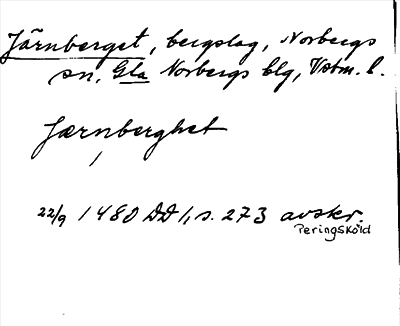 Järnberget, bergslag, Norbergs
sn, Gla Norbergs blg, Vstm. l.
Jærnberghet
22/9 1480 DD 1, s. 273 avskr.
Peringsköld